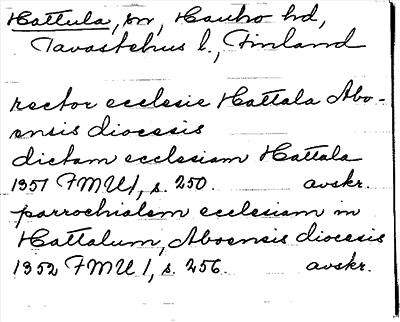 Hattula, sn, Hauho hd,
Tavastehus l., Finland
rector ecclesie Hattala Abo-
ensis diocesis
dictam ecclesiam Hattala
1351 FMU 1, s. 250. avskr.
parrochialem ecclesiam in
Hattalum, Aboensis diocesis
1352 FMU 1, s. 256. avskr.